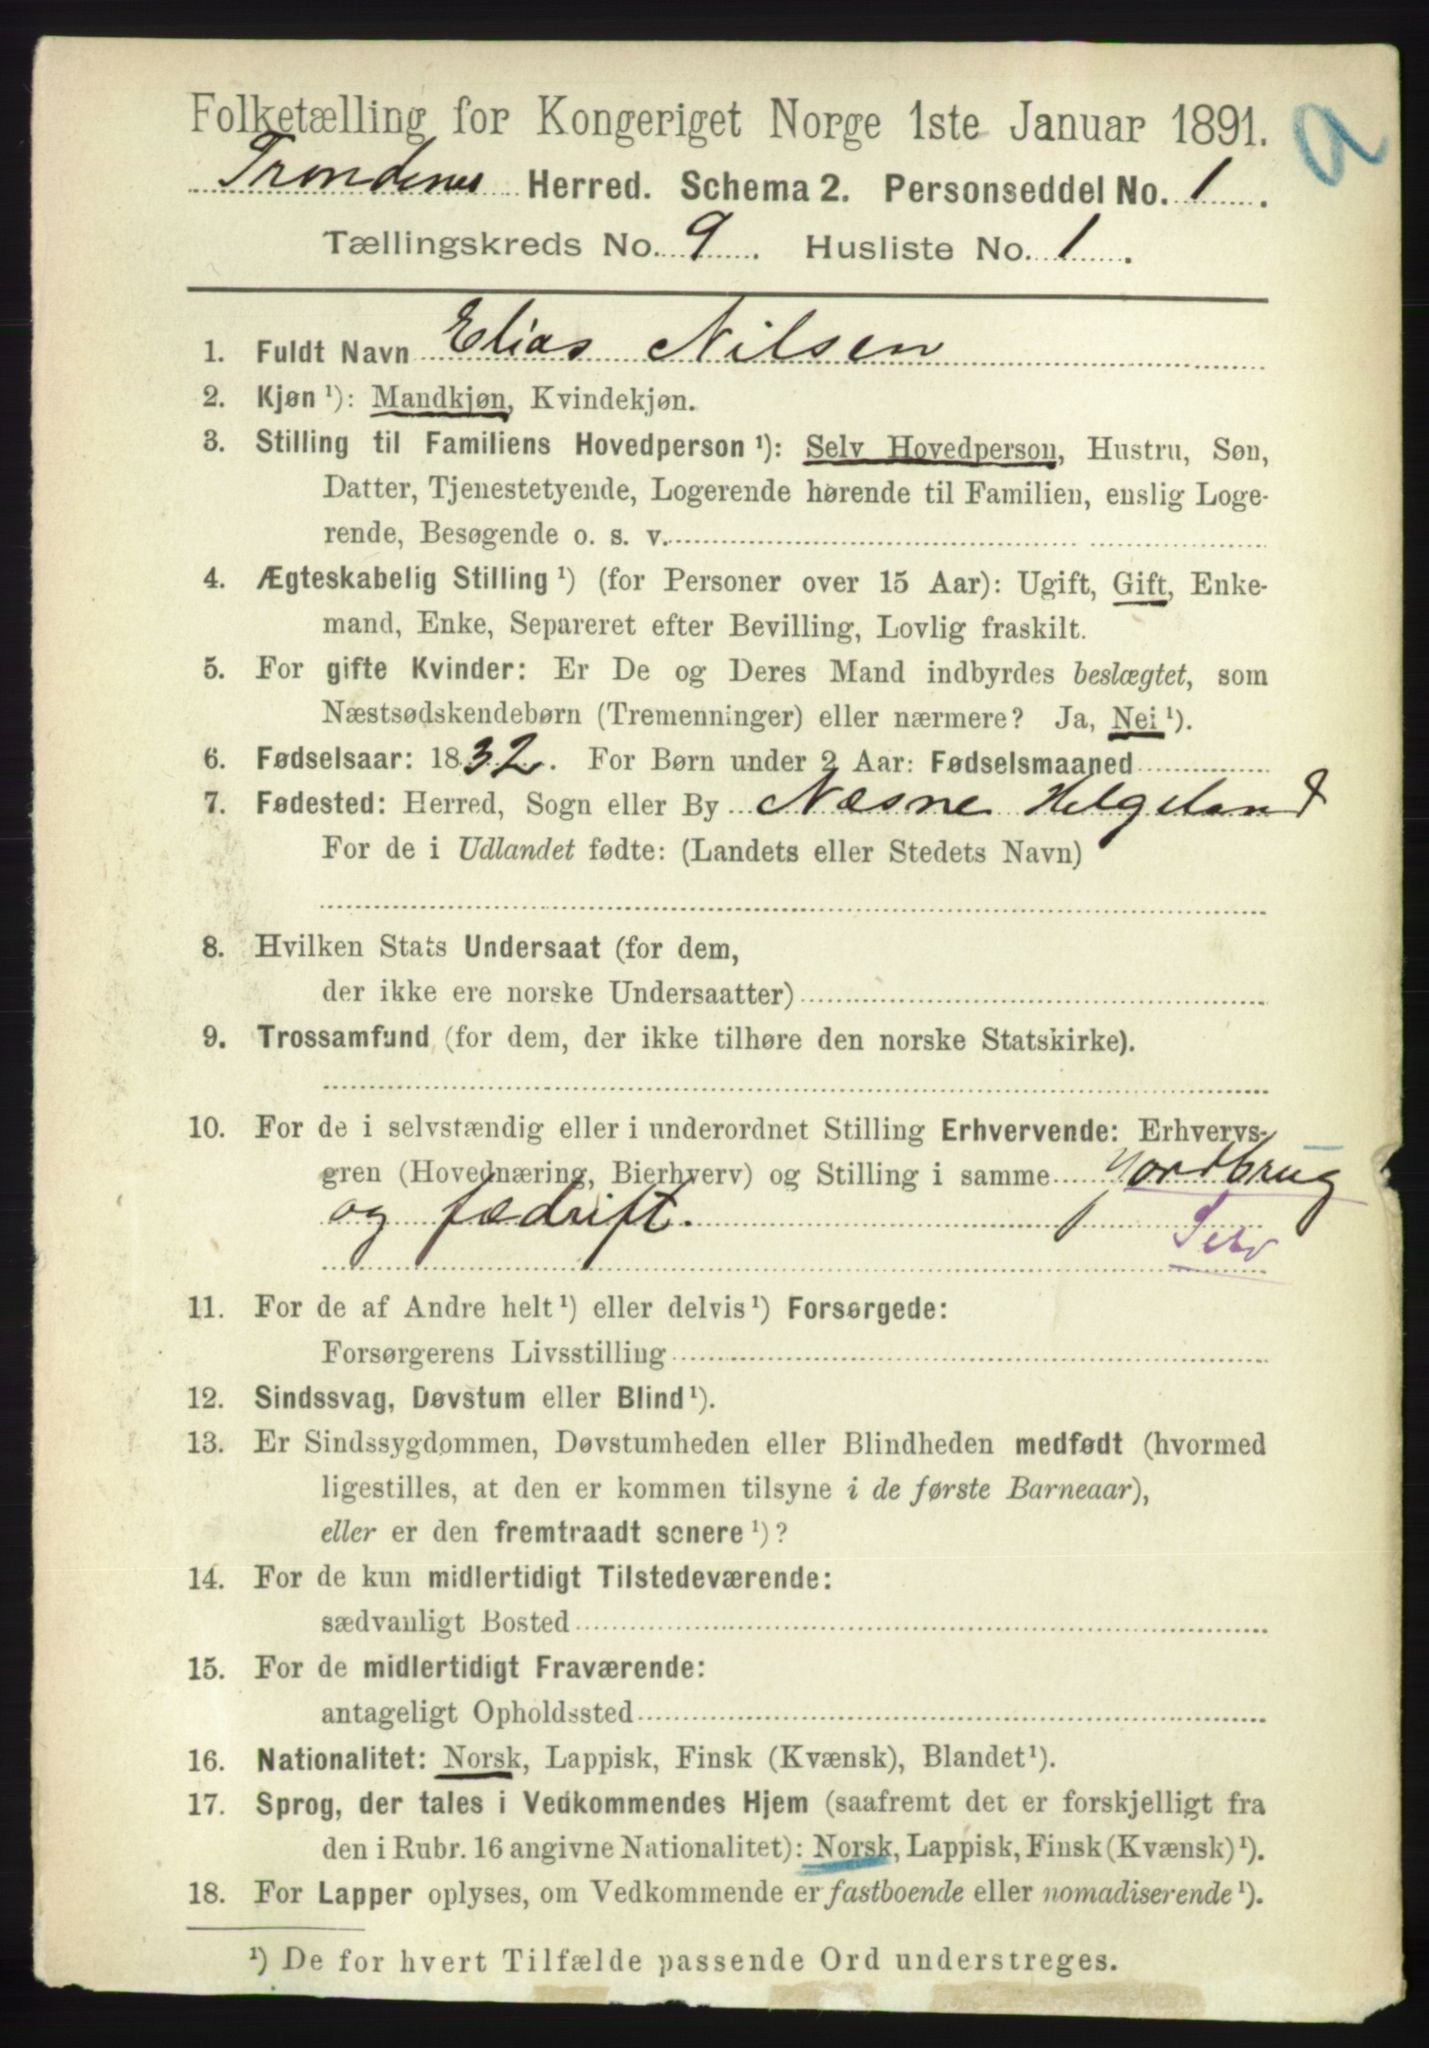 Folketælling for Kongeriget Norge 1ste Januar 1891.
a
Trondenes Herred. Schema 2. Personseddel No. 1.
Tællingskreds No. 9. Husliste No. 1.
1. Fuldt Navn Elias Nilsen
2. Kjøn ¹): Mandkjøn, Kvindekjøn.
3. Stilling til Familiens Hovedperson ¹): Selv Hovedperson, Hustru, Søn,
Datter, Tjenestetyende, Logerende hørende til Familien, enslig Loge-
rende, Besøgende o. s. v.
4. Ægteskabelig Stilling ¹) (for Personer over 15 Aar): Ugift, Gift, Enke-
mand, Enke, Separeret efter Bevilling, Lovlig fraskilt.
5. For gifte Kvinder: Er De og Deres Mand indbyrdes beslægtet, som
Næstsødskendebørn (Tremenninger) eller nærmere? Ja, Nei ¹).
6. Fødselsaar: 1832. For Børn under 2 Aar: Fødselsmaaned
7. Fødested: Herred, Sogn eller By Næsne Helgeland
For de i Udlandet fødte: (Landets eller Stedets Navn)
8. Hvilken Stats Undersaat (for dem,
der ikke ere norske Undersaatter)
9. Trossamfund (for dem, der ikke tilhøre den norske Statskirke).
10. For de i selvstændig eller i underordnet Stilling Erhvervende: Erhvervs-
gren (Hovednæring, Bierhverv) og Stilling i samme Jordbrug
og fædrift.
Selv
11. For de af Andre helt ¹) eller delvis ¹) Forsørgede:
Forsørgerens Livsstilling
12. Sindssvag, Døvstum eller Blind ¹).
13. Er Sindssygdommen, Døvstumheden eller Blindheden medfødt (hvormed
ligestilles, at den er kommen tilsyne i de første Barneaar),
eller er den fremtraadt senere ¹)?
14. For de kun midlertidigt Tilstedeværende:
sædvanligt Bosted
15. For de midlertidigt Fraværende:
antageligt Opholdssted
16. Nationalitet: Norsk, Lappisk, Finsk (Kvænsk), Blandet ¹).
17. Sprog, der tales i Vedkommendes Hjem (saafremt det er forskjelligt fra
den i Rubr. 16 angivne Nationalitet): Norsk, Lappisk, Finsk (Kvænsk) ¹).
18. For Lapper oplyses, om Vedkommende er fastboende eller nomadiserende ¹).
¹) De for hvert Tilfælde passende Ord understreges.